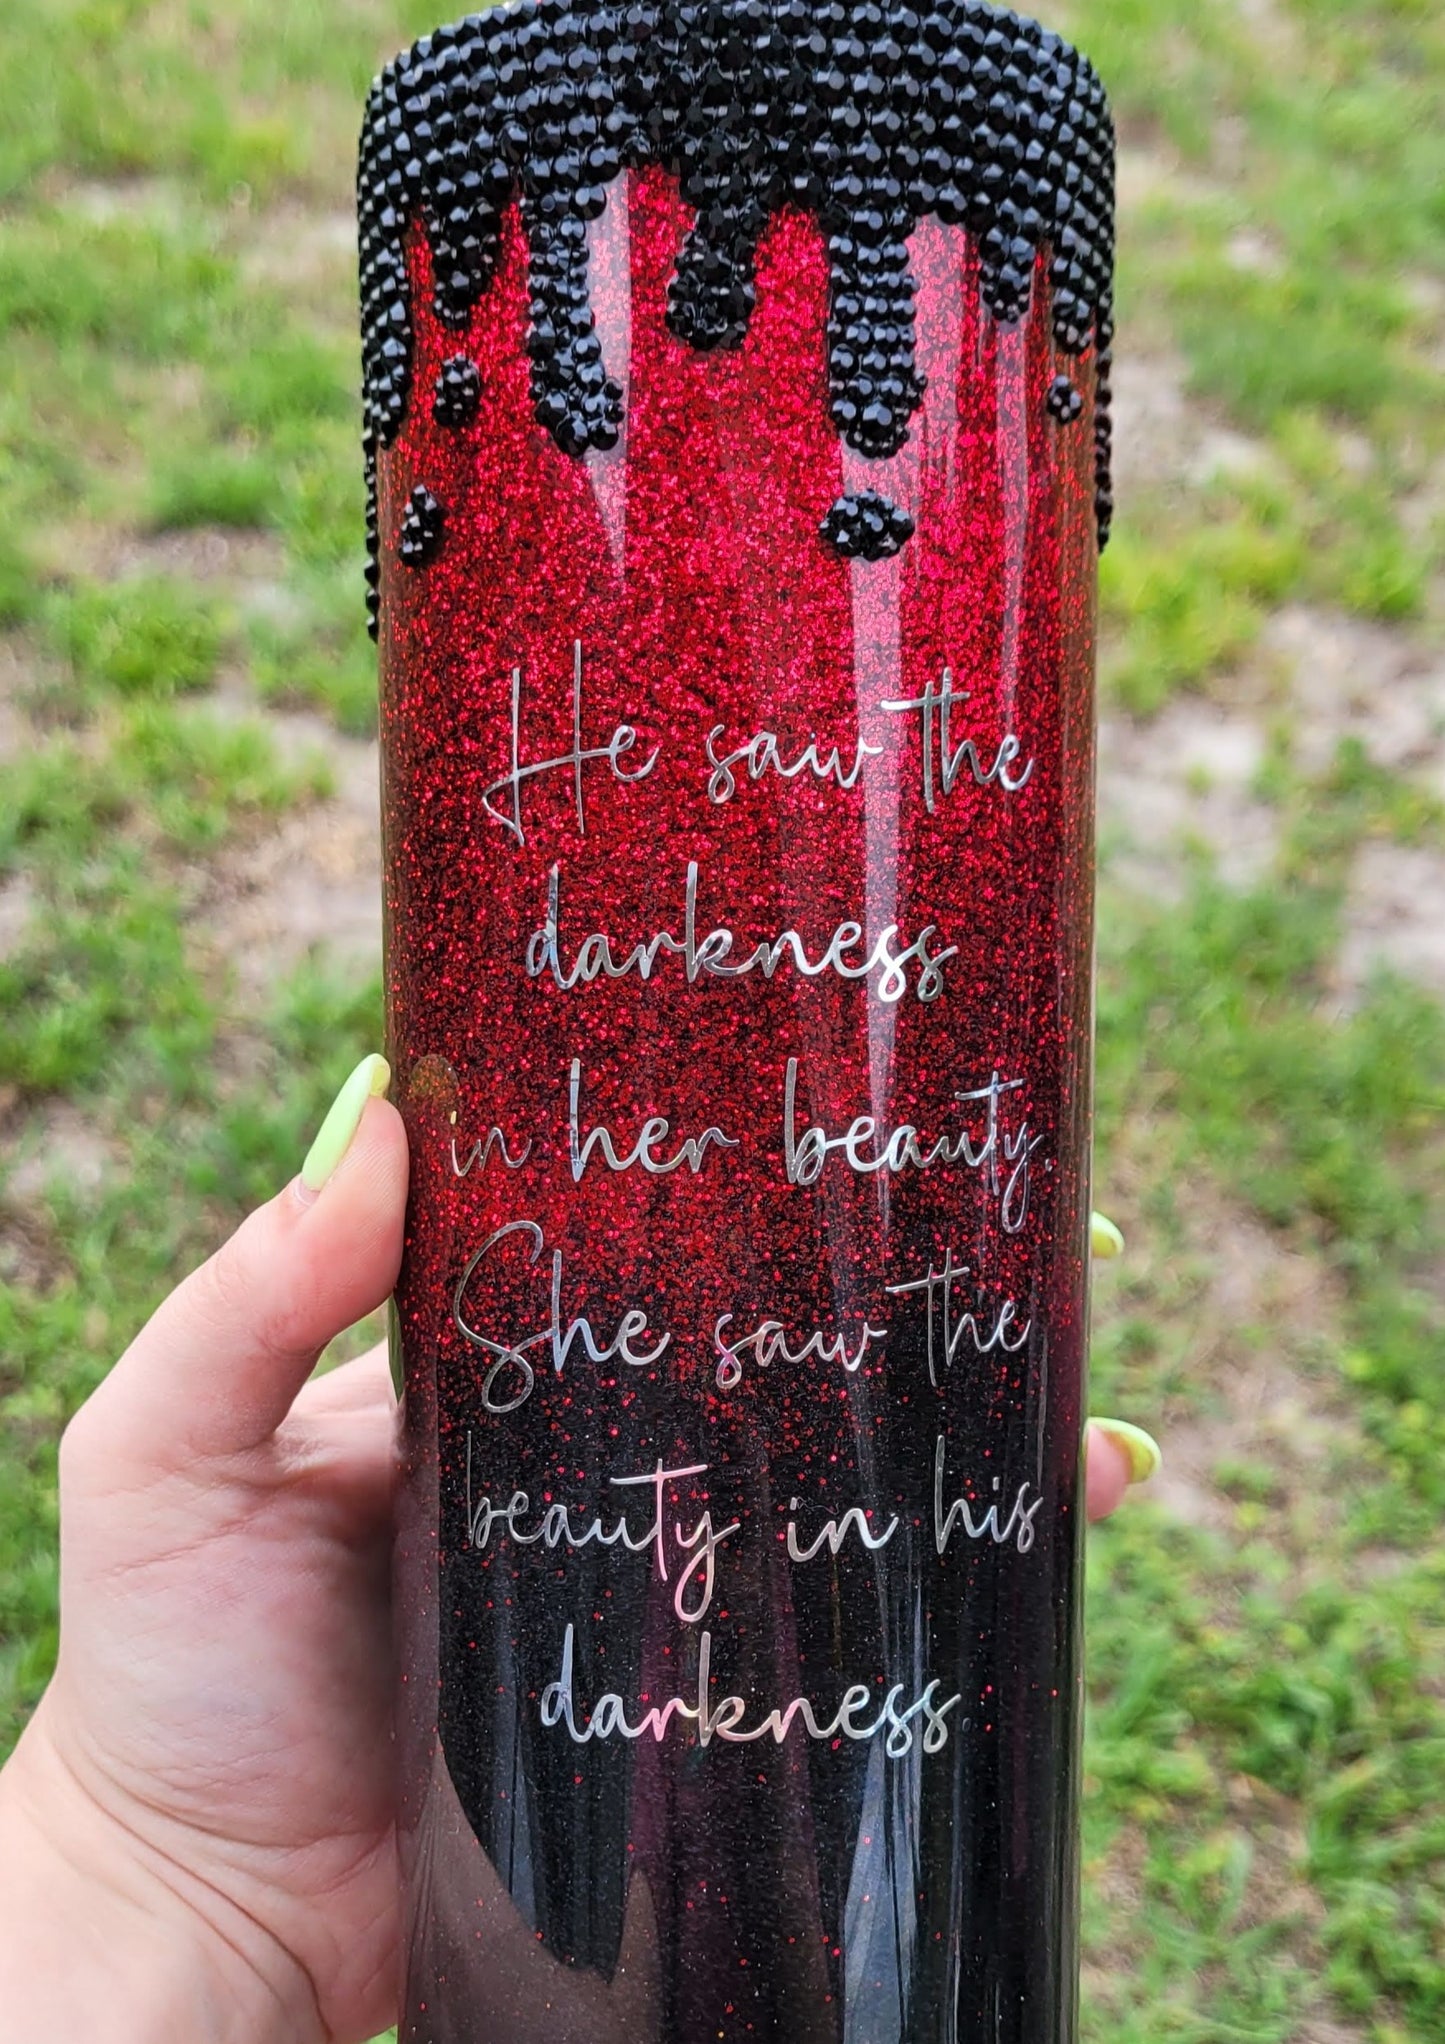 He saw the
darkness
in her beauty.
She saw the
beauty in his
darkness